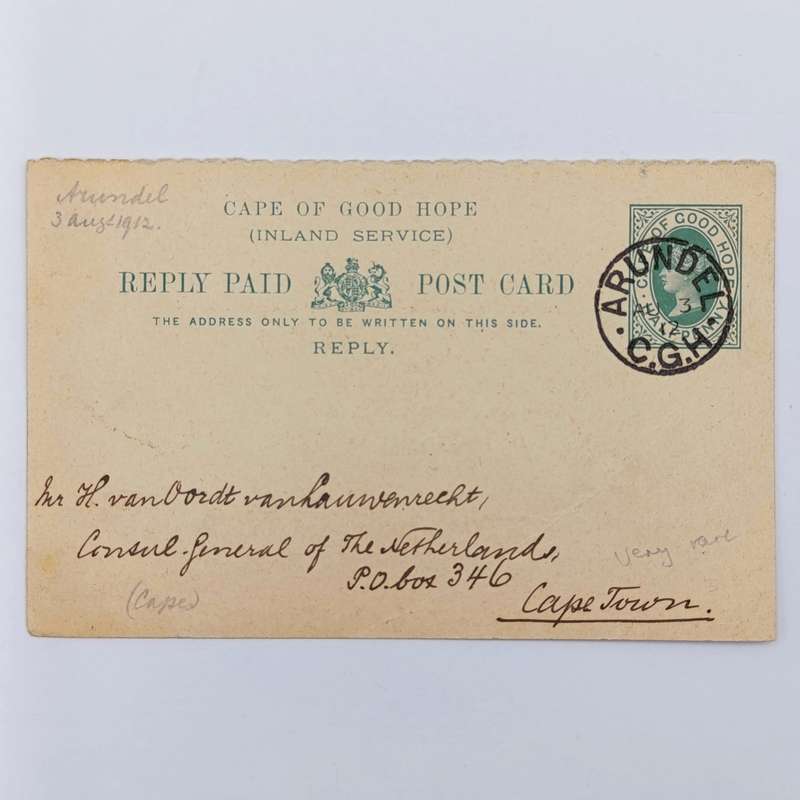 Arundel
3 Aug 1912.
CAPE OF GOOD HOPE
(INLAND SERVICE)
REPLY PAID POST CARD
THE ADDRESS ONLY TO BE WRITTEN ON THIS SIDE.
REPLY.
CAPE OF GOOD HOPE
HALFPENNY
ARUNDEL
AU 3
12
C.G.H.
Mr H. van Oordt van Lauwenrecht,
Consul-General of The Netherlands,
P.O. box 346
Cape Town.
very rare
(Cape)